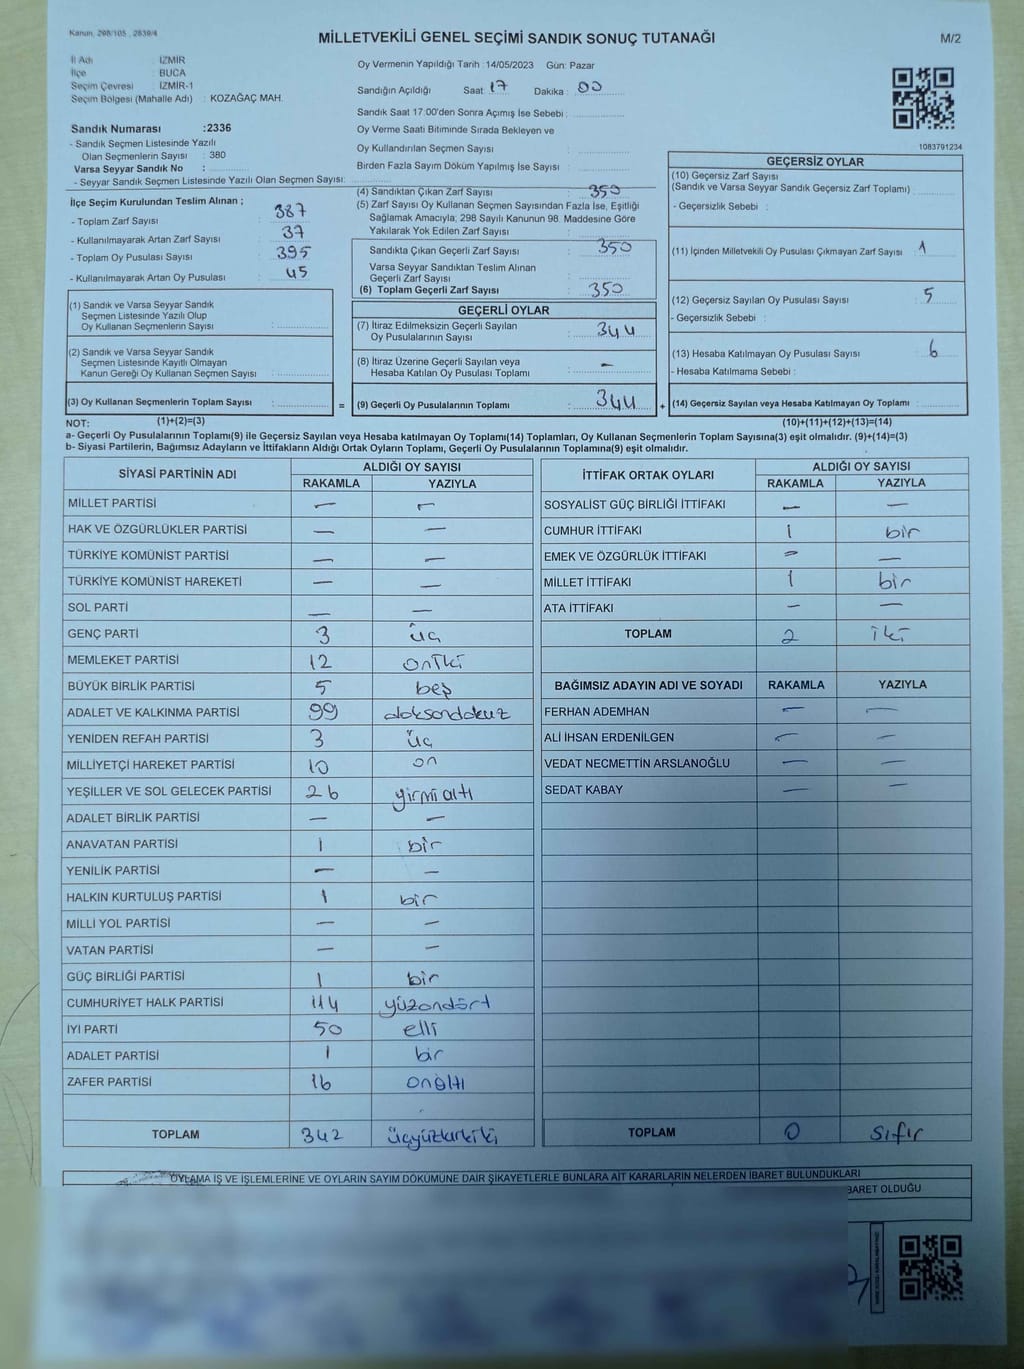 Kanun, 298/105 , 2839/4
MİLLETVEKİLİ GENEL SEÇİMİ SANDIK SONUÇ TUTANAĞI
M/2
İl Adı : İZMİR
İlçe : BUCA
Seçim Çevresi : İZMİR-1
Seçim Bölgesi (Mahalle Adı) : KOZAĞAÇ MAH.
Oy Vermenin Yapıldığı Tarih :14/05/2023 Gün: Pazar
Sandığın Açıldığı Saat 17 Dakika : 00
Sandık Saat 17:00'den Sonra Açımış İse Sebebi :
Oy Verme Saati Bitiminde Sırada Bekleyen ve
Oy Kullandırılan Seçmen Sayısı :
Birden Fazla Sayım Döküm Yapılmış İse Sayısı :
1083791234
Sandık Numarası :2336
- Sandık Seçmen Listesinde Yazılı
Olan Seçmenlerin Sayısı : 380
Varsa Seyyar Sandık No :
- Seyyar Sandık Seçmen Listesinde Yazılı Olan Seçmen Sayısı:
İlçe Seçim Kurulundan Teslim Alınan ;
- Toplam Zarf Sayısı : 387
- Kullanılmayarak Artan Zarf Sayısı : 37
- Toplam Oy Pusulası Sayısı : 395
- Kullanılmayarak Artan Oy Pusulası : 45
(1) Sandık ve Varsa Seyyar Sandık
Seçmen Listesinde Yazılı Olup
Oy Kullanan Seçmenlerin Sayısı :
(2) Sandık ve Varsa Seyyar Sandık
Seçmen Listesinde Kayıtlı Olmayan
Kanun Gereği Oy Kullanan Seçmen Sayısı :
(3) Oy Kullanan Seçmenlerin Toplam Sayısı :
(4) Sandıktan Çıkan Zarf Sayısı : 350
(5) Zarf Sayısı Oy Kullanan Seçmen Sayısından Fazla İse, Eşitliği
Sağlamak Amacıyla; 298 Sayılı Kanunun 98. Maddesine Göre
Yakılarak Yok Edilen Zarf Sayısı :
Sandıkta Çıkan Geçerli Zarf Sayısı : 350
Varsa Seyyar Sandıktan Teslim Alınan
Geçerli Zarf Sayısı :
(6) Toplam Geçerli Zarf Sayısı : 350
GEÇERLİ OYLAR
(7) İtiraz Edilmeksizin Geçerli Sayılan
Oy Pusulalarının Sayısı : 344
(8) İtiraz Üzerine Geçerli Sayılan veya
Hesaba Katılan Oy Pusulası Toplamı : —
= (9) Geçerli Oy Pusulalarının Toplamı : 344
GEÇERSİZ OYLAR
(10) Geçersiz Zarf Sayısı
(Sandık ve Varsa Seyyar Sandık Geçersiz Zarf Toplamı) :
- Geçersizlik Sebebi :
(11) İçinden Milletvekili Oy Pusulası Çıkmayan Zarf Sayısı : 1
(12) Geçersiz Sayılan Oy Pusulası Sayısı : 5
- Geçersizlik Sebebi :
(13) Hesaba Katılmayan Oy Pusulası Sayısı : 6
- Hesaba Katılmama Sebebi :
+ (14) Geçersiz Sayılan veya Hesaba Katılmayan Oy Toplamı :
NOT: (1)+(2)=(3) (10)+(11)+(12)+(13)=(14)
a- Geçerli Oy Pusulalarının Toplamı(9) ile Geçersiz Sayılan veya Hesaba katılmayan Oy Toplamı(14) Toplamları, Oy Kullanan Seçmenlerin Toplam Sayısına(3) eşit olmalıdır. (9)+(14)=(3)
b- Siyasi Partilerin, Bağımsız Adayların ve İttifakların Aldığı Ortak Oyların Toplamı, Geçerli Oy Pusulalarının Toplamına(9) eşit olmalıdır.
SİYASİ PARTİNİN ADI ALDIĞI OY SAYISI
RAKAMLA YAZIYLA
MİLLET PARTİSİ — —
HAK VE ÖZGÜRLÜKLER PARTİSİ — —
TÜRKİYE KOMÜNİST PARTİSİ — —
TÜRKİYE KOMÜNİST HAREKETİ — —
SOL PARTİ — —
GENÇ PARTİ 3 üç
MEMLEKET PARTİSİ 12 oniki
BÜYÜK BİRLİK PARTİSİ 5 beş
ADALET VE KALKINMA PARTİSİ 99 doksandokuz
YENİDEN REFAH PARTİSİ 3 üç
MİLLİYETÇİ HAREKET PARTİSİ 10 on
YEŞİLLER VE SOL GELECEK PARTİSİ 26 yirmi altı
ADALET BİRLİK PARTİSİ — —
ANAVATAN PARTİSİ 1 bir
YENİLİK PARTİSİ — —
HALKIN KURTULUŞ PARTİSİ 1 bir
MİLLİ YOL PARTİSİ — —
VATAN PARTİSİ — —
GÜÇ BİRLİĞİ PARTİSİ 1 bir
CUMHURİYET HALK PARTİSİ 114 yüzondört
İYİ PARTİ 50 elli
ADALET PARTİSİ 1 bir
ZAFER PARTİSİ 16 onaltı
TOPLAM 342 üçyüzkırkiki
İTTİFAK ORTAK OYLARI ALDIĞI OY SAYISI
RAKAMLA YAZIYLA
SOSYALİST GÜÇ BİRLİĞİ İTTİFAKI — —
CUMHUR İTTİFAKI 1 bir
EMEK VE ÖZGÜRLÜK İTTİFAKI — —
MİLLET İTTİFAKI 1 bir
ATA İTTİFAKI — —
TOPLAM 2 iki
BAĞIMSIZ ADAYIN ADI VE SOYADI RAKAMLA YAZIYLA
FERHAN ADEMHAN — —
ALİ İHSAN ERDENİLGEN — —
VEDAT NECMETTİN ARSLANOĞLU — —
SEDAT KABAY — —
TOPLAM 0 sıfır
OYLAMA İŞ VE İŞLEMLERİNE VE OYLARIN SAYIM DÖKÜMÜNE DAİR ŞİKAYETLERLE BUNLARA AİT KARARLARIN NELERDEN İBARET BULUNDUKLARI
BARET OLDUĞU